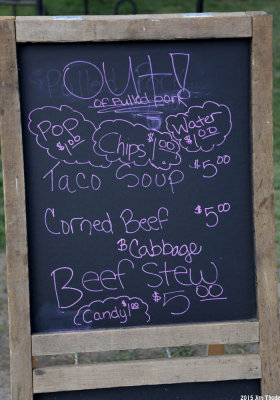 OUT!
of Pulled pork
Pop $1.00
Chips $1.00
Water $1.00
Taco Soup $5.00
Corned Beef $5.00
& Cabbage
Beef Stew
$5.00
Candy $1.00
2015 Jim Thode